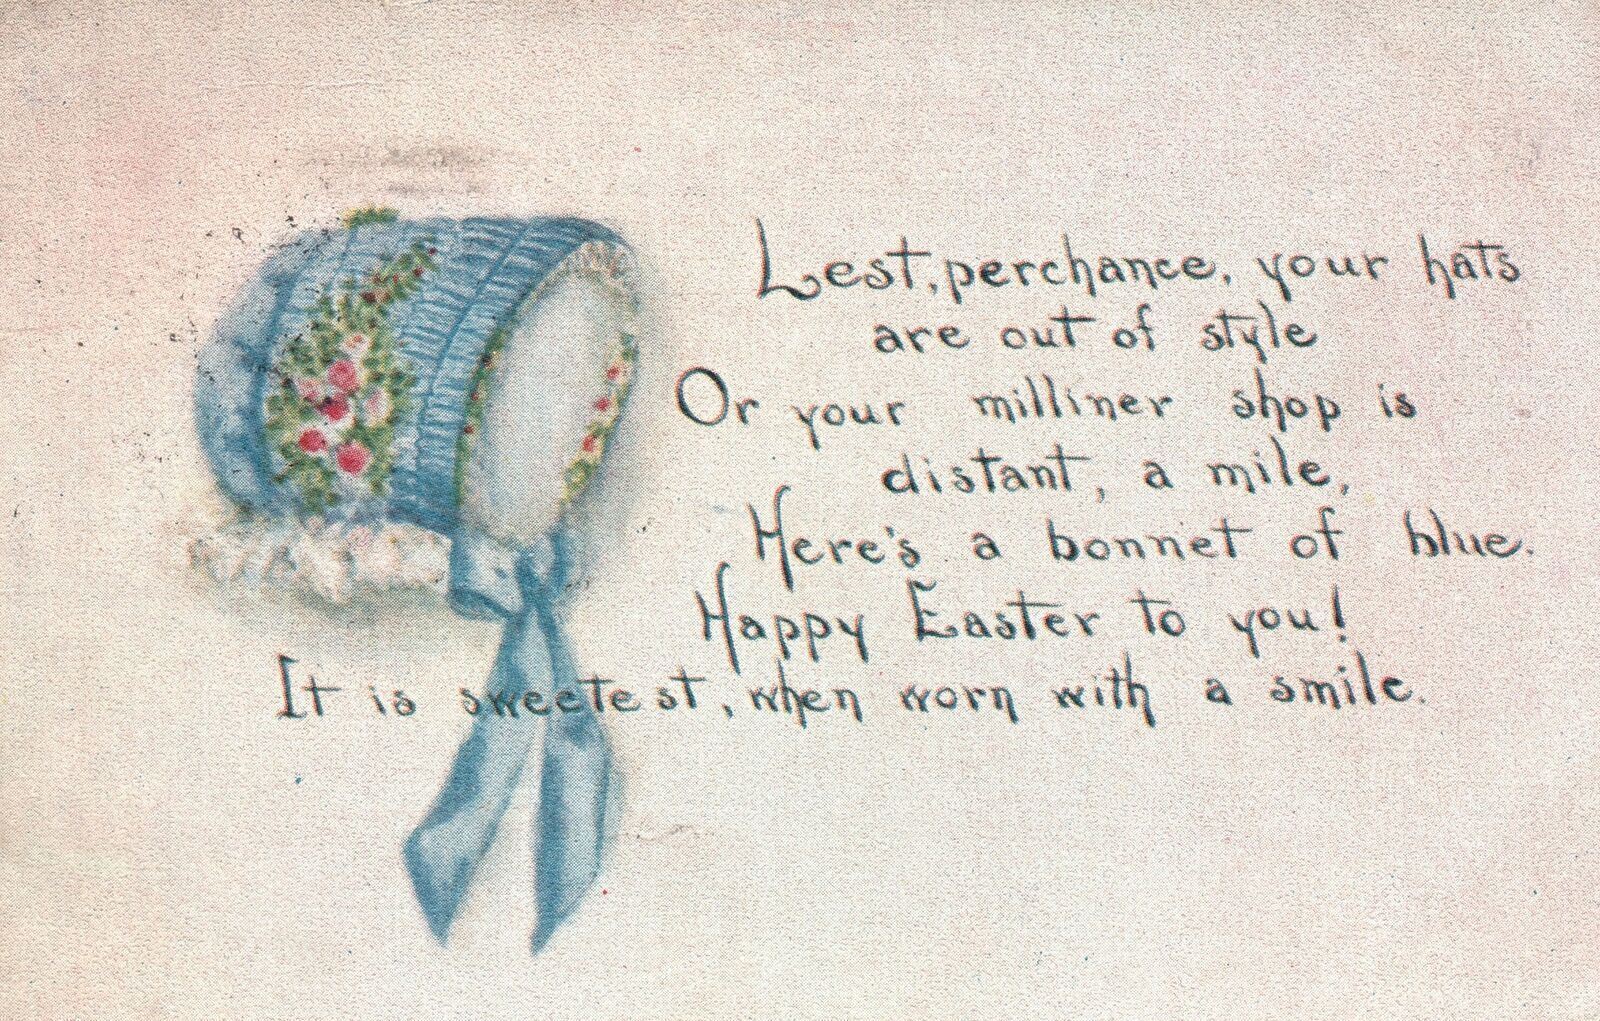 Lest, perchance, your hats
are out of style
Or your milliner shop is
distant, a mile,
Here's a bonnet of blue.
Happy Easter to you!
It is sweetest, when worn with a smile.